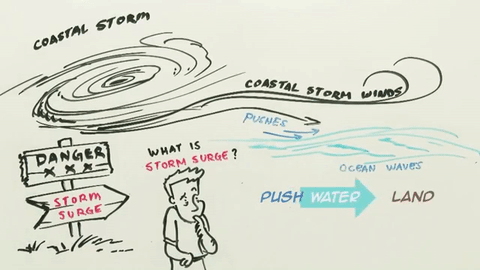 COASTAL STORM
COASTAL STORM WINDS
PUSHES
DANGER
X X X
WHAT IS
STORM SURGE?
OCEAN WAVES
STORM
SURGE
PUSH WATER LAND